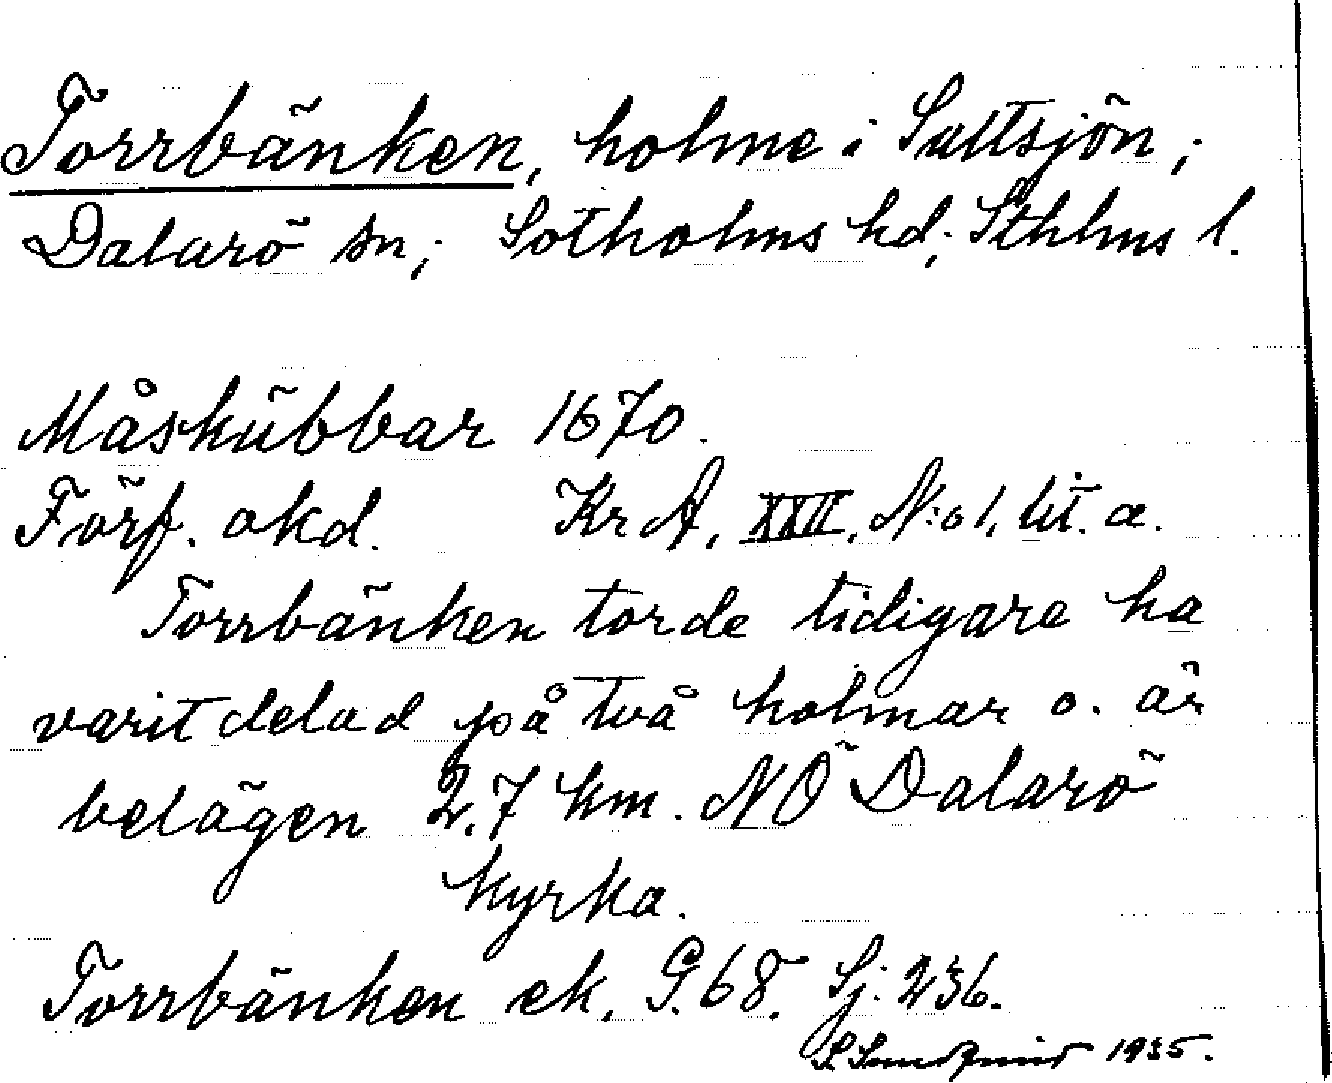 Torrbänken, holme i Saltsjön;
Dalarö sn; Sotholms hd; Sthlms l.
Måskübbar 1670.
Förf. okd. Kr A, XXII, N:o 1, lit. a.
Torrbänken torde tidigare ha
varit delad på två holmar o. är
belägen 2,7 km. NÖ Dalarö
kyrka.
Torrbänken ek. G. 68. Sj: 236.
1935.